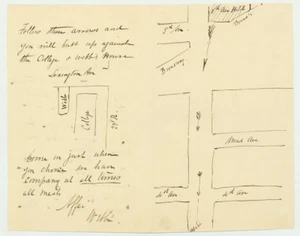 Follow these arrows and
you will butt up against
the College & Webb's House
Lexington Ave
Webb
College
Come in just when
you choose we have
company at all times
all meals
Webb
5th Ave
5th Ave Hotel
Broadway
4th Ave
4th Ave